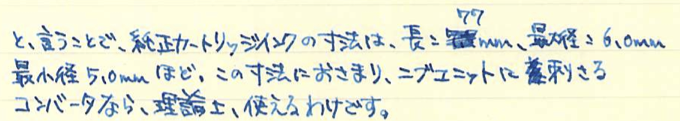 と、言うことで、純正カートリッジインクの寸法は、長: 77mm、最大径: 6.0mm
最小径 5.0mm ほど。この寸法におさまり、ニブユニットに刺さる
コンバータなら、理論上、使えるわけです。